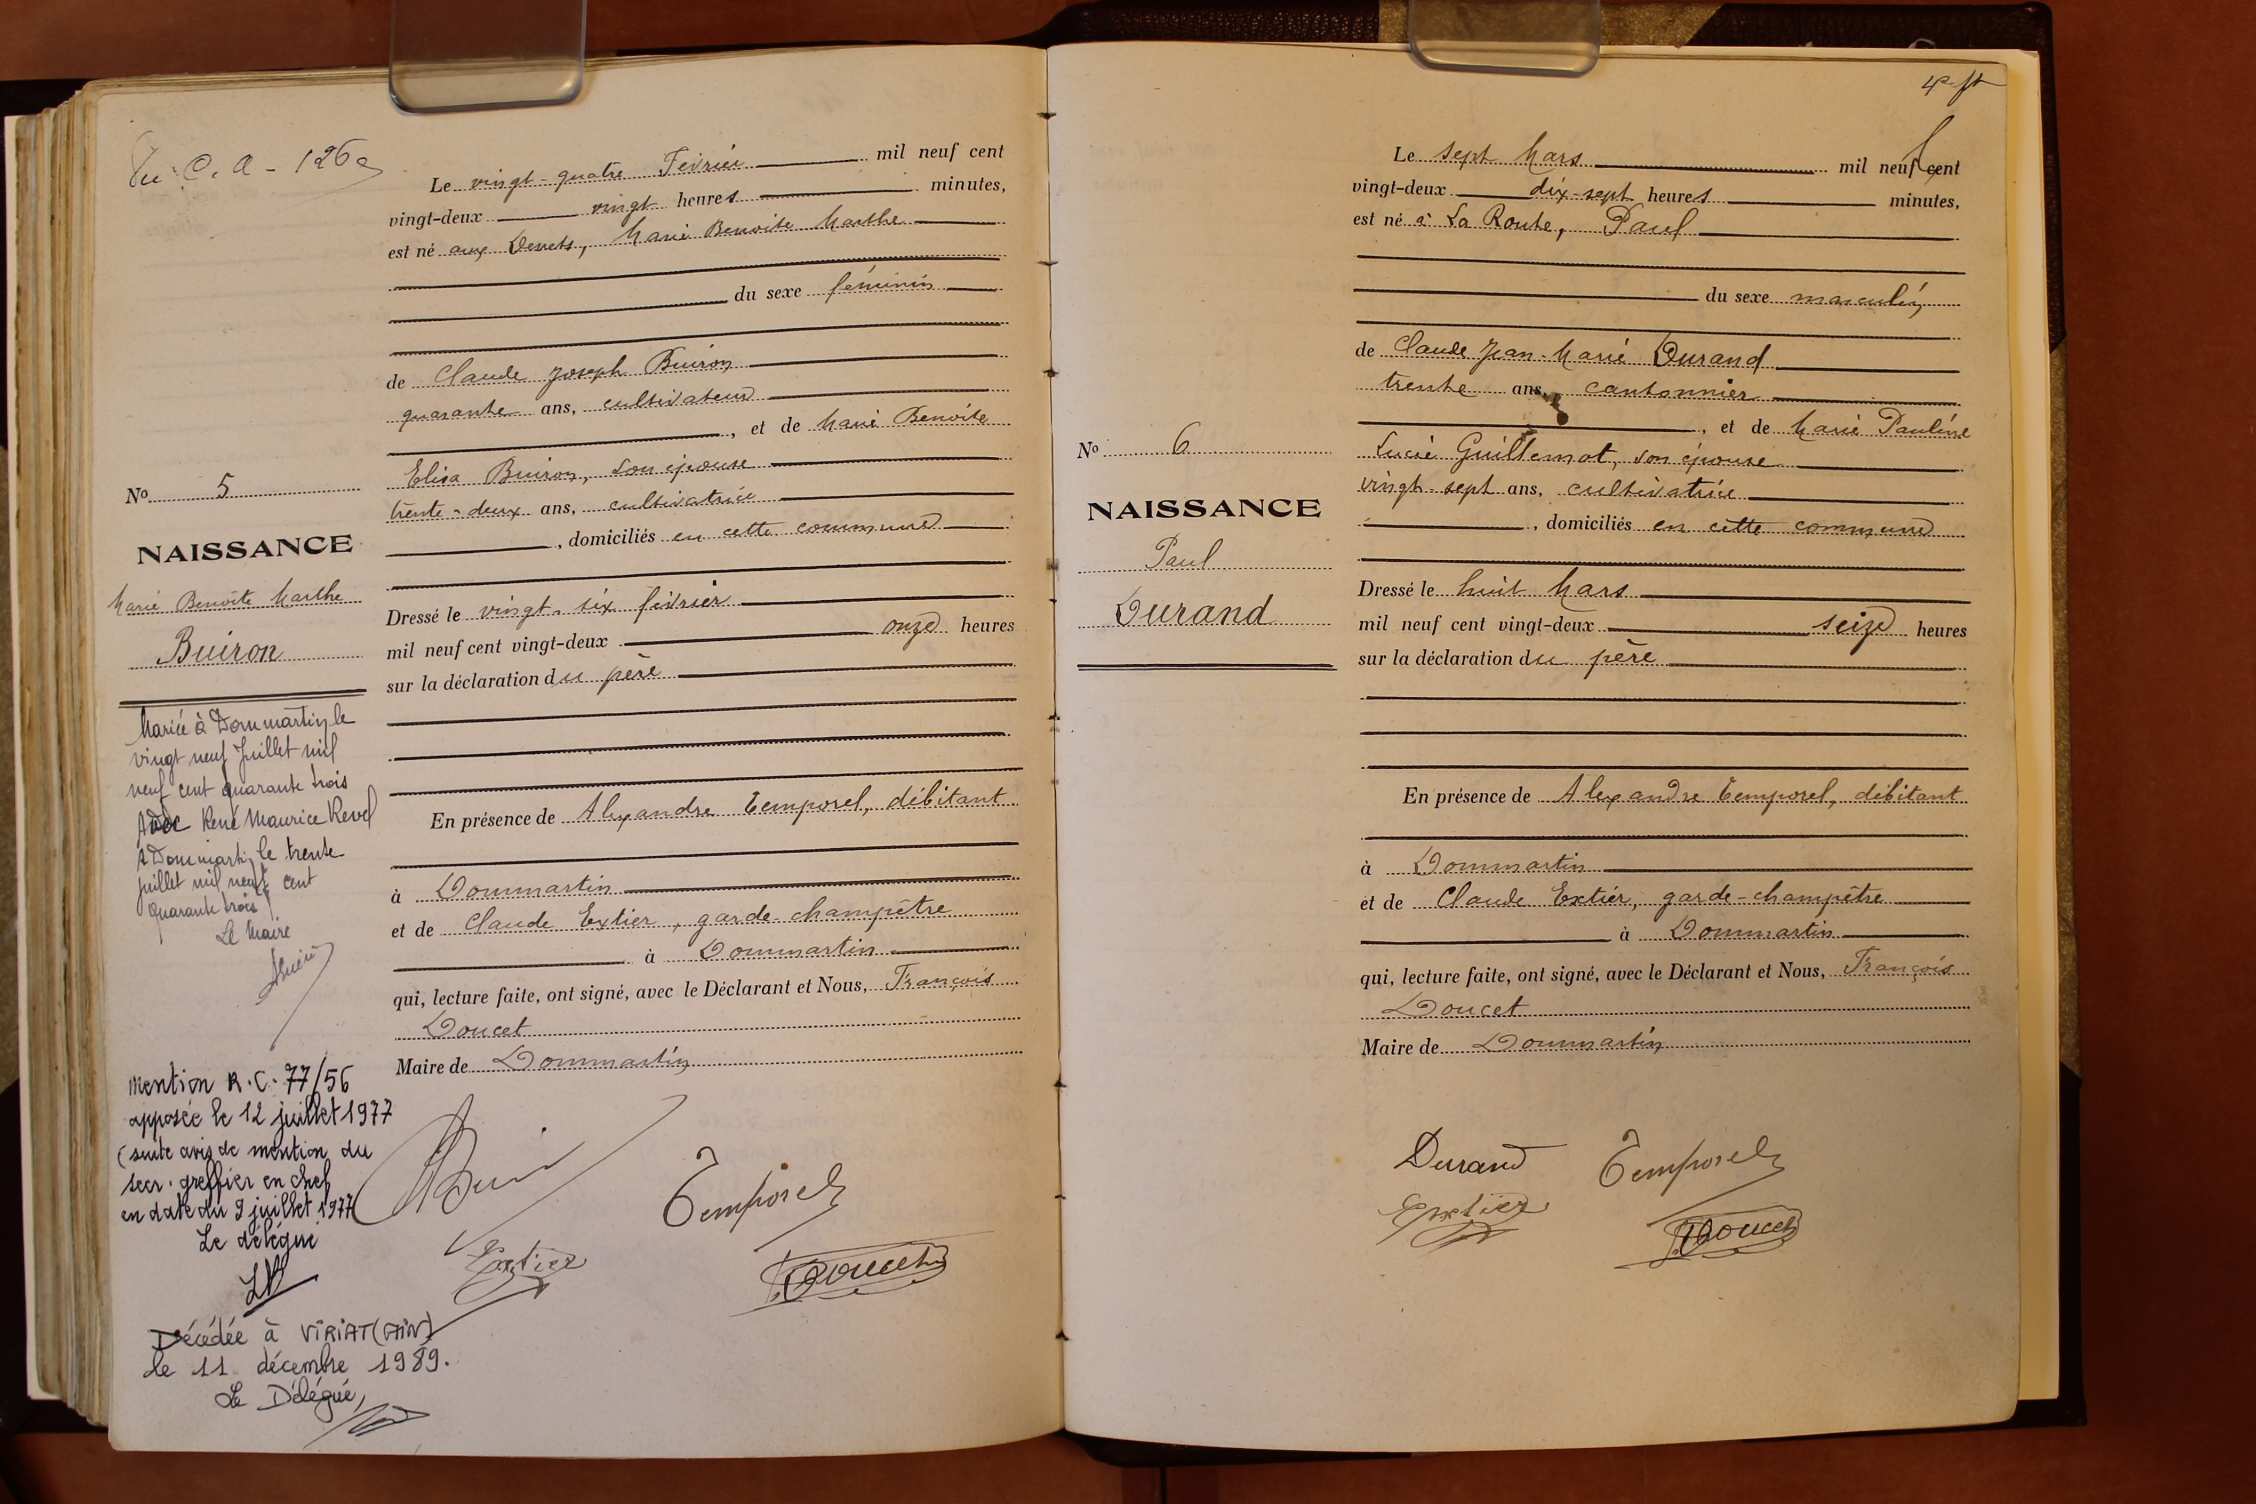 Vu C. A - 126
Le vingt-quatre Février mil neuf cent
vingt-deux vingt heures minutes,
est né aux Devets, Marie Benoite Marthe
du sexe féminin
de Claude Joseph Buiron
quarante ans, cultivateur
, et de Marie Benoite
Elisa Buiron, son épouse
trente-deux ans, cultivatrice
, domiciliés en cette commune
Dressé le vingt-six février
mil neuf cent vingt-deux onze heures
sur la déclaration du père
En présence de Alexandre Temporel, débitant
à Dommartin
et de Claude Extier, garde-champêtre
à Dommartin
qui, lecture faite, ont signé, avec le Déclarant et Nous, François
Doucet
Maire de Dommartin
Temporel
Extier
Doucet
No 5
NAISSANCE
Marie Benoîte Marthe
Buiron
Mariée à Dommartin le
vingt neuf Juillet mil
neuf cent quarante trois
Avec René Maurice Revel
A Dommartin le trente
juillet mil neuf cent
quarante trois
Le Maire
Mention R.C. 77/56
apposée le 12 juillet 1977
(suite avis de mention du
secr. greffier en chef
en date du 9 juillet 1977
Le délégué
Décédée à VIRIAT (AIN)
le 11 décembre 1989.
Le Délégué,
Le sept Mars mil neuf cent
vingt-deux dix-sept heures minutes,
est né à La Route, Paul
du sexe masculin
de Claude Jean-Marie Durand
trente ans, cantonnier
, et de Marie Pauline
Lucie Guillemot, son épouse
vingt-sept ans, cultivatrice
, domiciliés en cette commune
Dressé le huit Mars
mil neuf cent vingt-deux seize heures
sur la déclaration du père
En présence de Alexandre Temporel, débitant
à Dommartin
et de Claude Extier, garde-champêtre
à Dommartin
qui, lecture faite, ont signé, avec le Déclarant et Nous, François
Doucet
Maire de Dommartin
Durand Temporel
Extier
Doucet
No 6
NAISSANCE
Paul
Durand